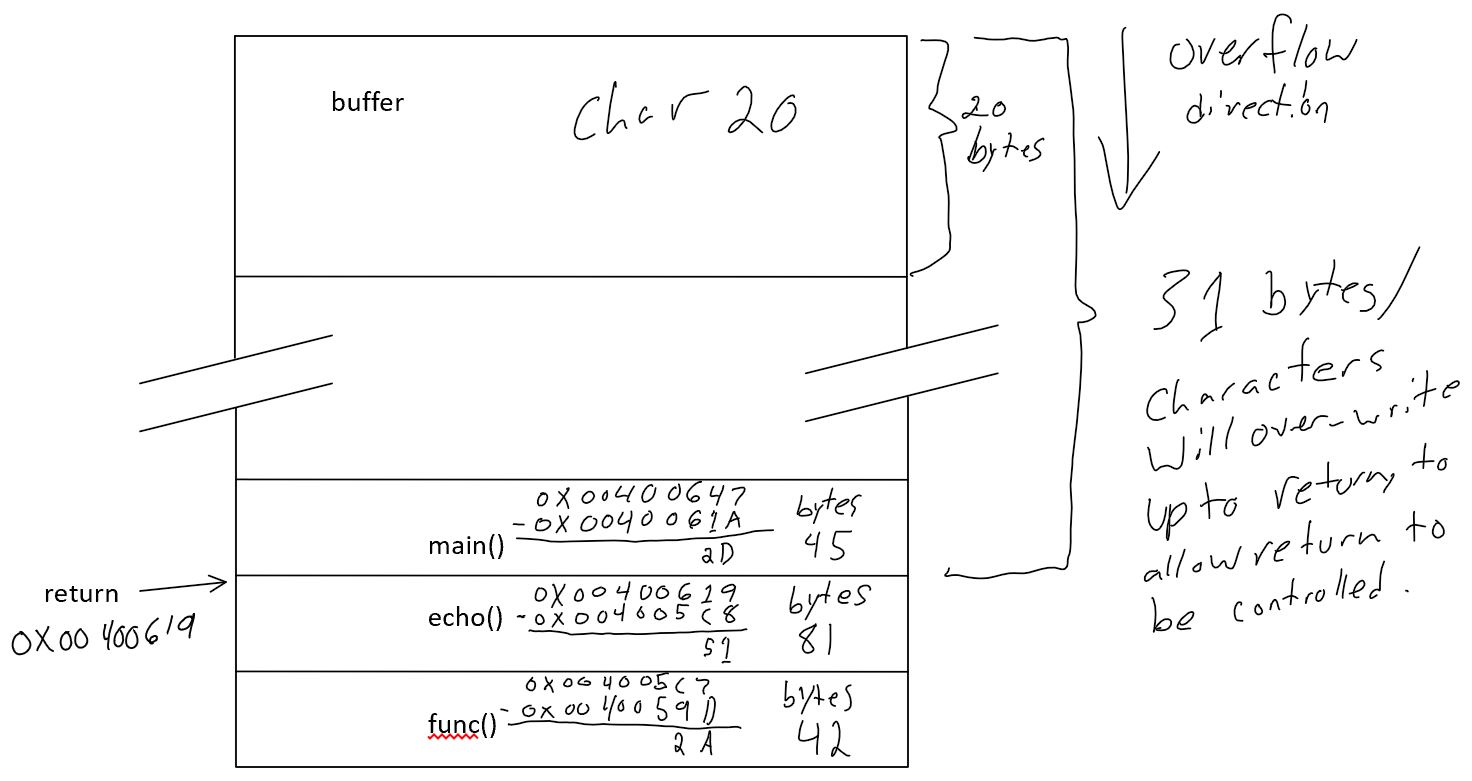 buffer
Char 20
20
bytes
overflow
direction
31 bytes/
Characters
Will over-write
up to return, to
allow return to
be controlled.
0X00400647
-0X0040061A
2D
main()
bytes
45
return
0X00400619
echo()
0X00400619
-0X004005C8
51
bytes
81
func()
0X004005C7
-0X0040059D
2A
bytes
42